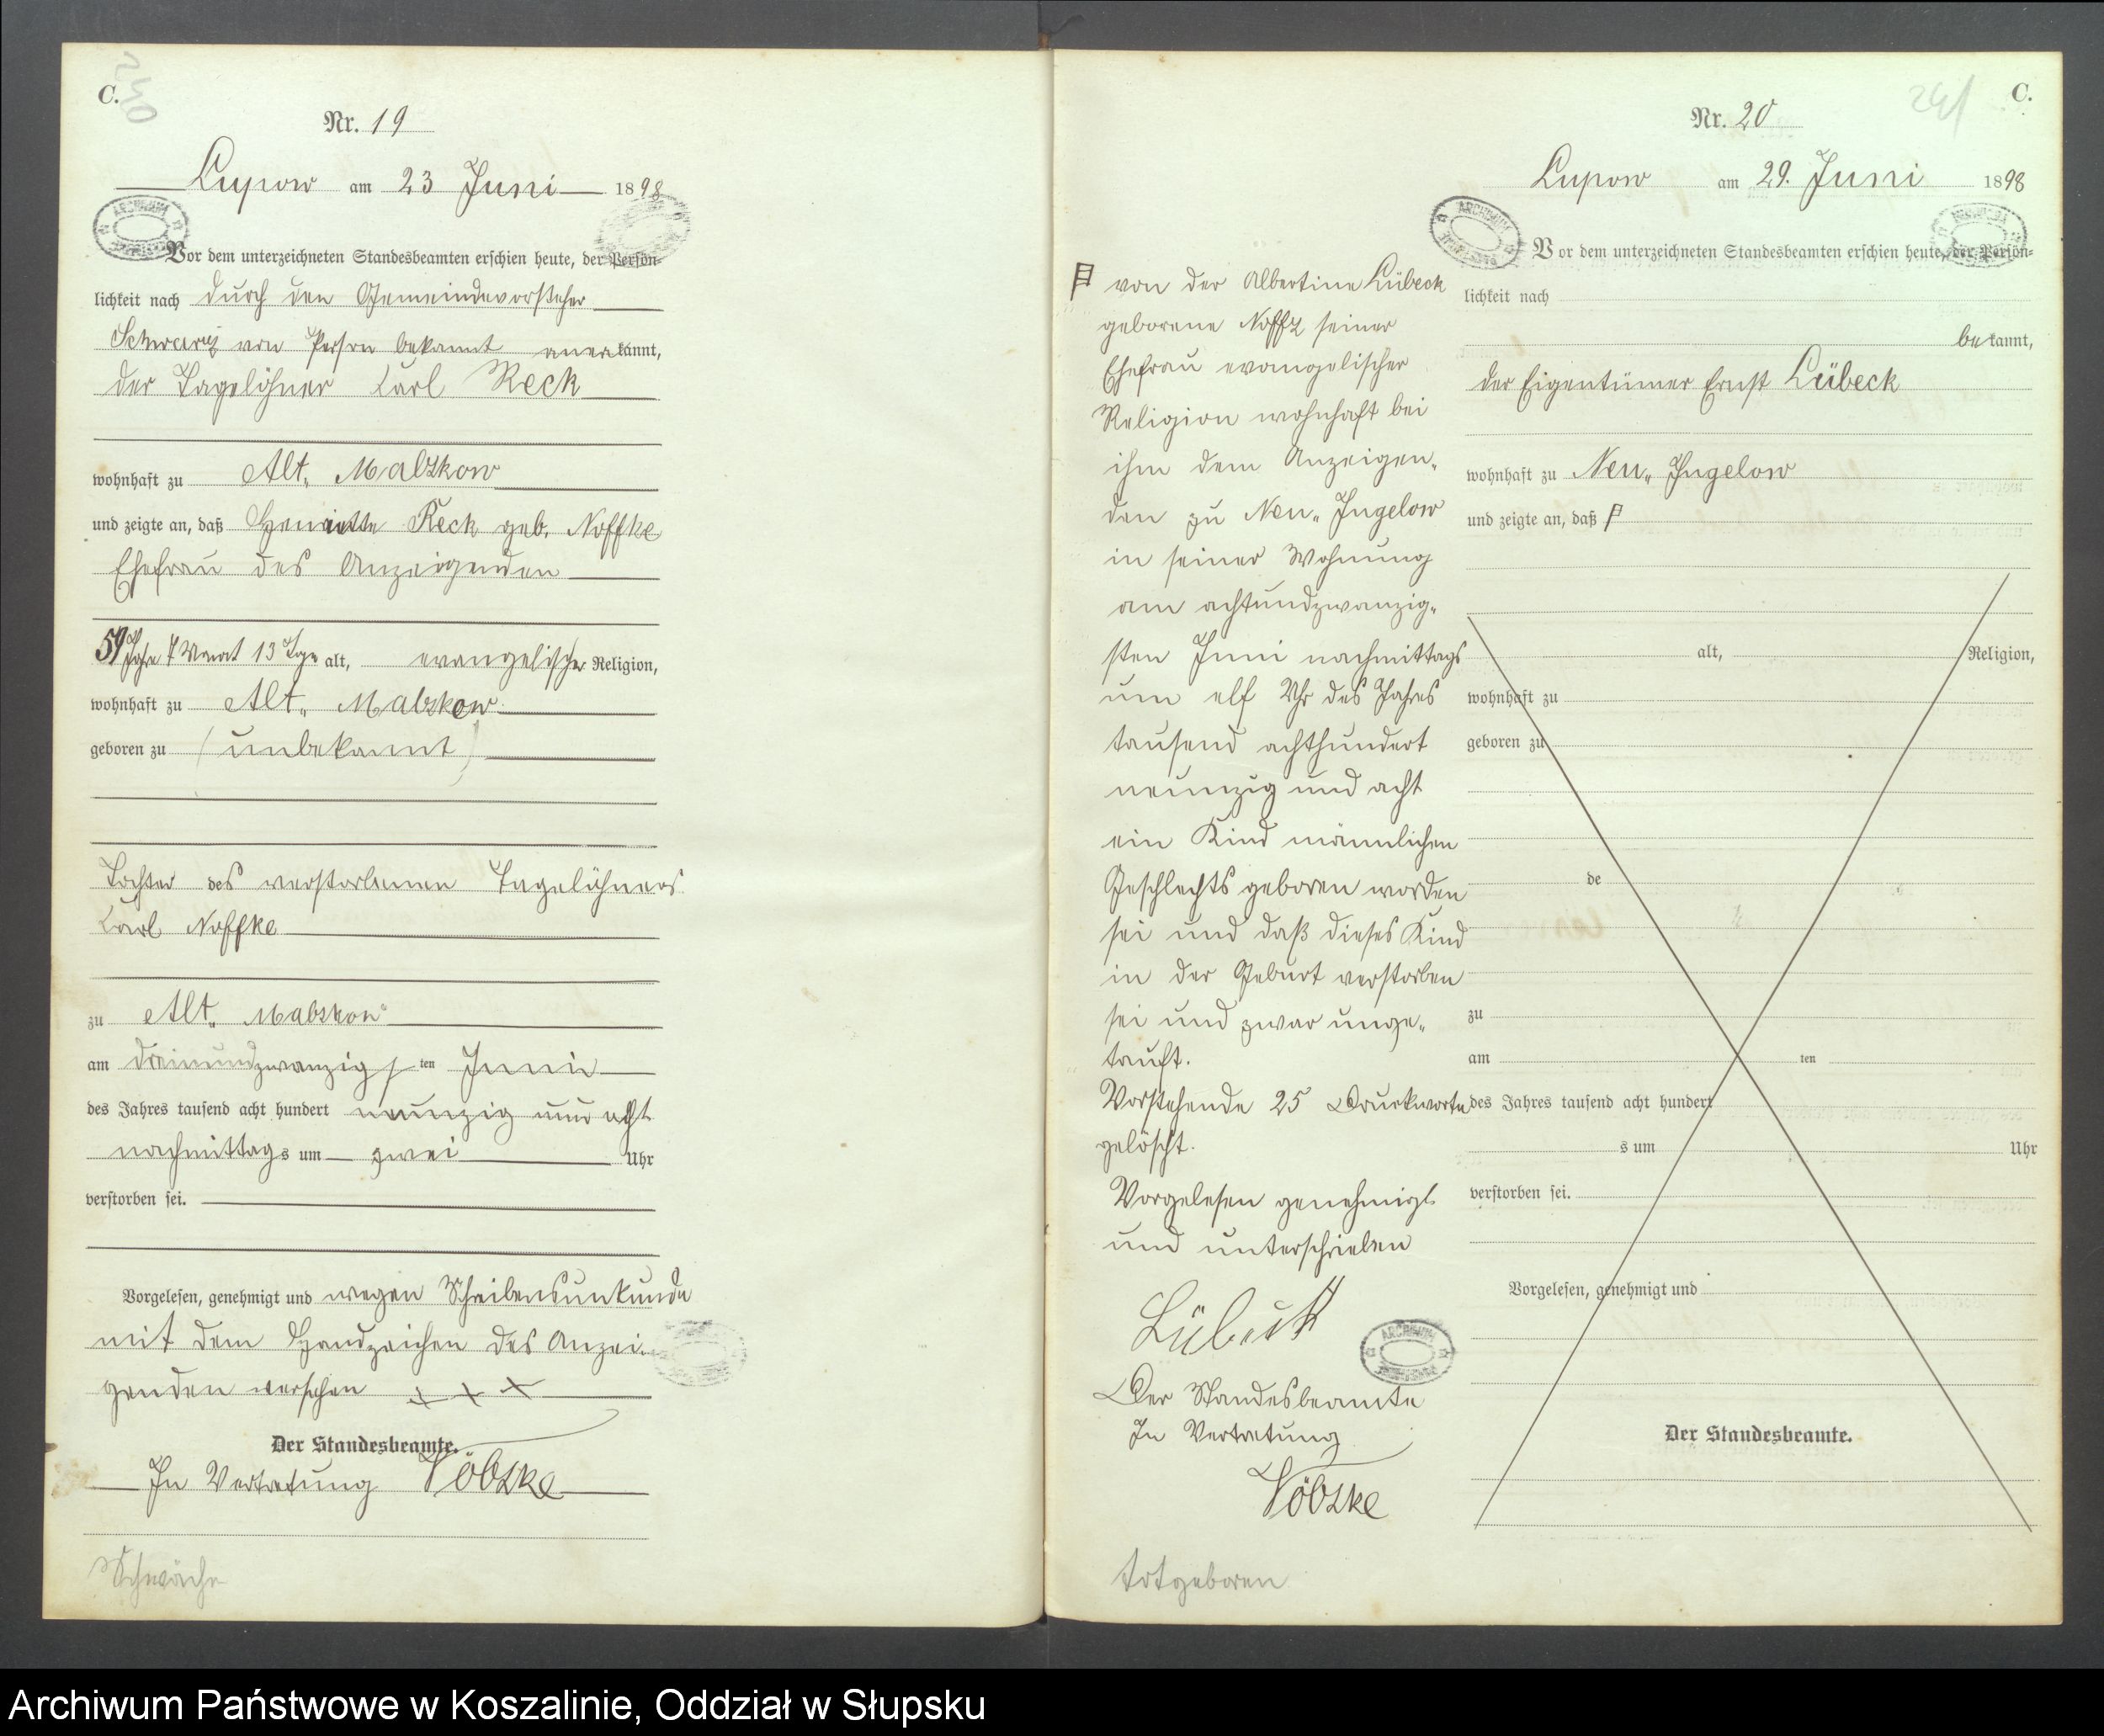 C.
230
Nr. 19
Lupow am 23 Juni 1898
Vor dem unterzeichneten Standesbeamten erschien heute, der Persön-
lichkeit nach durch den Gemeindevorsteher
Schwarz von Person bekannt anerkannt,
der Tagelöhner Carl Reck
wohnhaft zu Alt-Malzkow
und zeigte an, daß Henriette Reck geb. Noffke
Ehefrau des Anzeigenden
59 Jahre 4 Monat 13 Tage alt, evangelischer Religion,
wohnhaft zu Alt-Malzkow
geboren zu (unbekannt)
Tochter des verstorbenen Tagelöhners
Carl Noffke
zu Alt-Malzkow
am dreiundzwanzigsten Juni
des Jahres tausend acht hundert neunzig und acht
nachmittags um zwei Uhr
verstorben sei.
Vorgelesen, genehmigt und wegen Schreibensunkunde
mit dem Handzeichen des Anzei-
genden versehen + + +
Der Standesbeamte.
In Vertretung Vöbzke
Schwäche
241
C.
Nr. 20
Lupow am 29. Juni 1898
Vor dem unterzeichneten Standesbeamten erschien heute, der Persön-
lichkeit nach
bekannt,
der Eigentümer Ernst Lübeck
wohnhaft zu Neu-Jugelow
und zeigte an, daß
von der Albertine Lübeck
geborene Noffz seiner
Ehefrau evangelischer
Religion wohnhaft bei
ihm dem Anzeigen-
den zu Neu-Jugelow
in seiner Wohnung
am achtundzwanzig-
sten Juni nachmittags
um elf Uhr des Jahres
tausend achthundert
neunzig und acht
ein Kind männlichen
Geschlechts geboren worden
sei und daß dieses Kind
in der Geburt verstorben
sei und zwar unge-
tauft.
Vorstehende 25 Druckworte
gelöscht.
Vorgelesen genehmigt
und unterschrieben
Lübeck
Der Standesbeamte
In Vertretung
Vöbzke
totgeboren
alt, Religion,
wohnhaft zu
geboren zu
de
zu
am ten
des Jahres tausend acht hundert
s um Uhr
verstorben sei.
Vorgelesen, genehmigt und
Der Standesbeamte.
Archiwum Państwowe w Koszalinie, Oddział w Słupsku